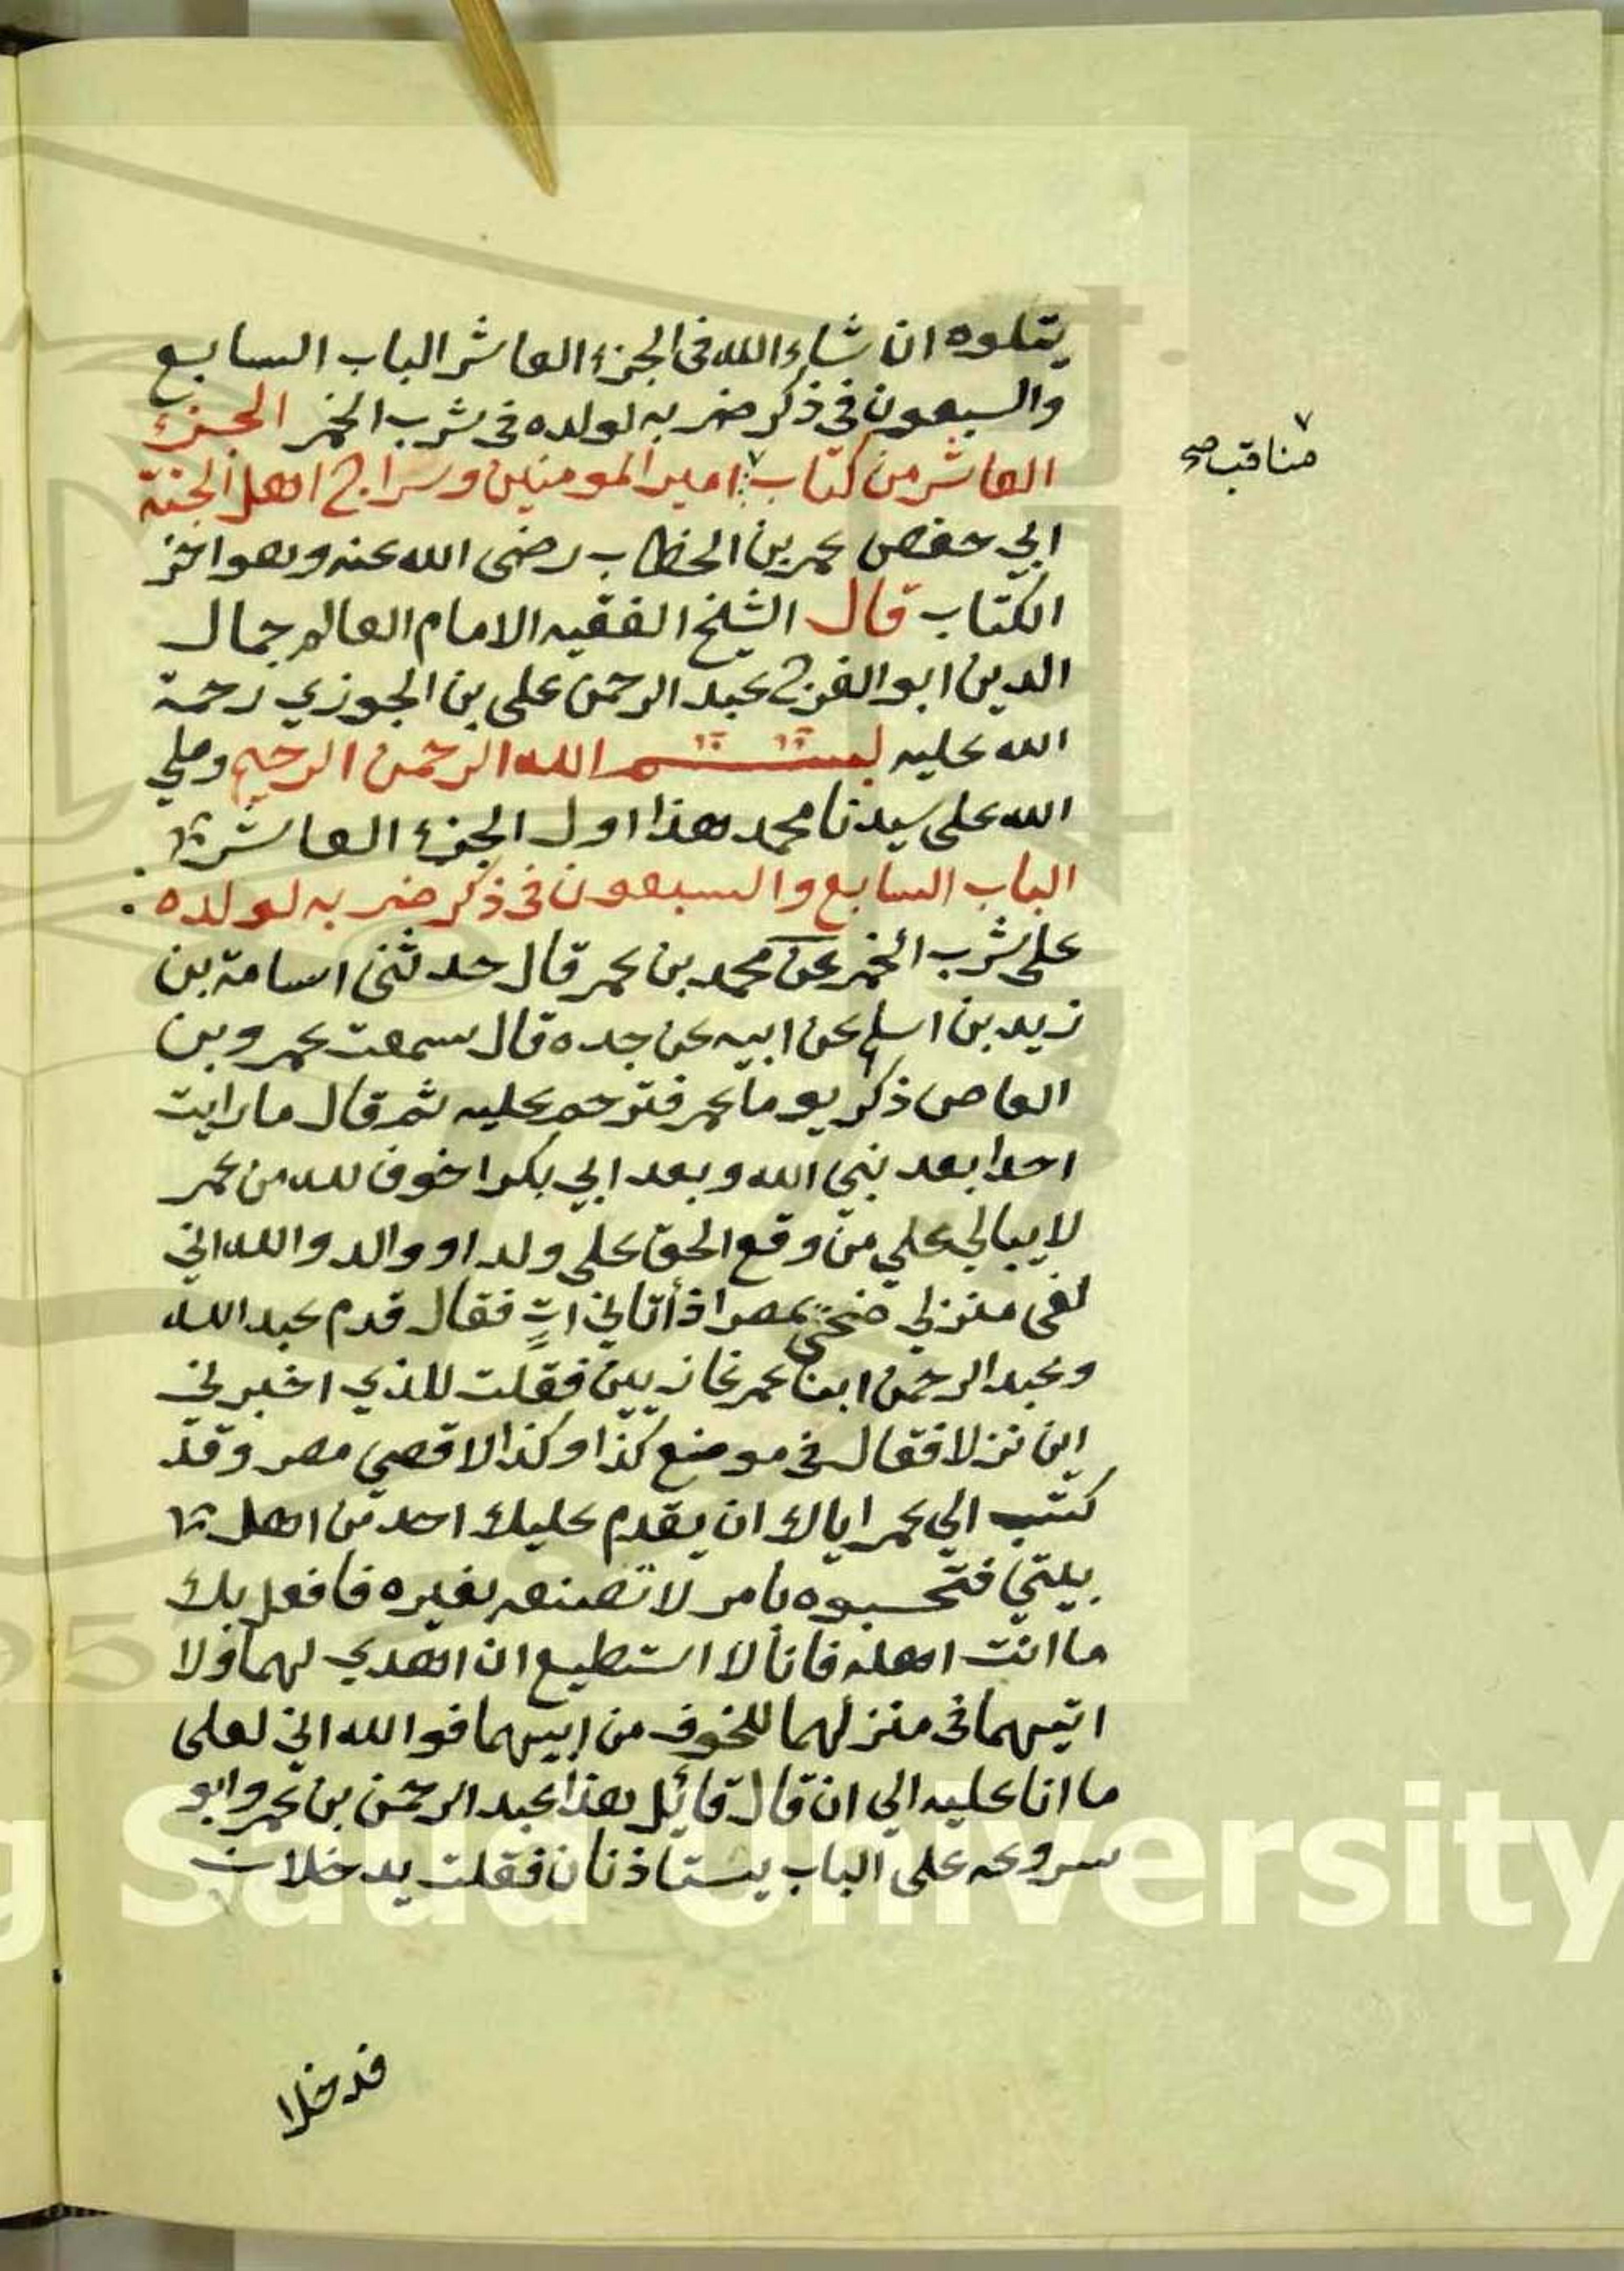 يتلوه ان شاء الله في الجزء العاشر الباب السابع
والسبعون في ذكر ضربه لولده في شرب الخمر الجزء
العاشر من كتاب امير المومنين وسراج اهل الجنة
مناقب صح
ابي حفص عمر بن الخطاب رضى الله عنه وهو اخر
الكتاب قال الشيخ الفقيه الامام العالم جمال
الدين ابو الفرج عبد الرحمن على بن الجوزي رحمة
الله عليه بسم الله الرحمن الرحيم وصلي
الله على سيدنا محمد هذا اول الجزء العاشر
الباب السابع والسبعون في ذكر ضربه لولده
على شرب الخمر عن محمد بن عمر قال حدثنى اسامة بن
زيد بن اسلم عن ابيه عن جده قال سمعت عمرو بن
العاص ذكر يوما عمر فترحم عليه ثم قال ما رايت
احدا بعد نبي الله وبعد ابي بكر اخوف لله من عمر
لا يبالي علي من وقع الحق على ولد او والد والله اني
لفى منزلي ضحىً بمصر اذ أتاني اتٍ فقال قدم عبد الله
وعبد الرحمن ابنا عمر غازيين فقلت للذي اخبرني
اين نزلا فقال في موضع كذا وكذا لاقصي مصر وقد
كتب الي عمر اياك ان يقدم عليك احد من اهل
بيتي فتحبوه بامر لا تصنعه بغيره فافعل بك
ما انت اهله فانا لا استطيع ان اهدي لهما ولا
اتيهما في منزلهما للخوف من ابيهما فوالله اني لعلى
ما انا عليه الي ان قال قائل هذا عبد الرحمن بن عمر وابو
سروعه على الباب يستاذنان فقلت يدخلان
فدخلا
King Saud University